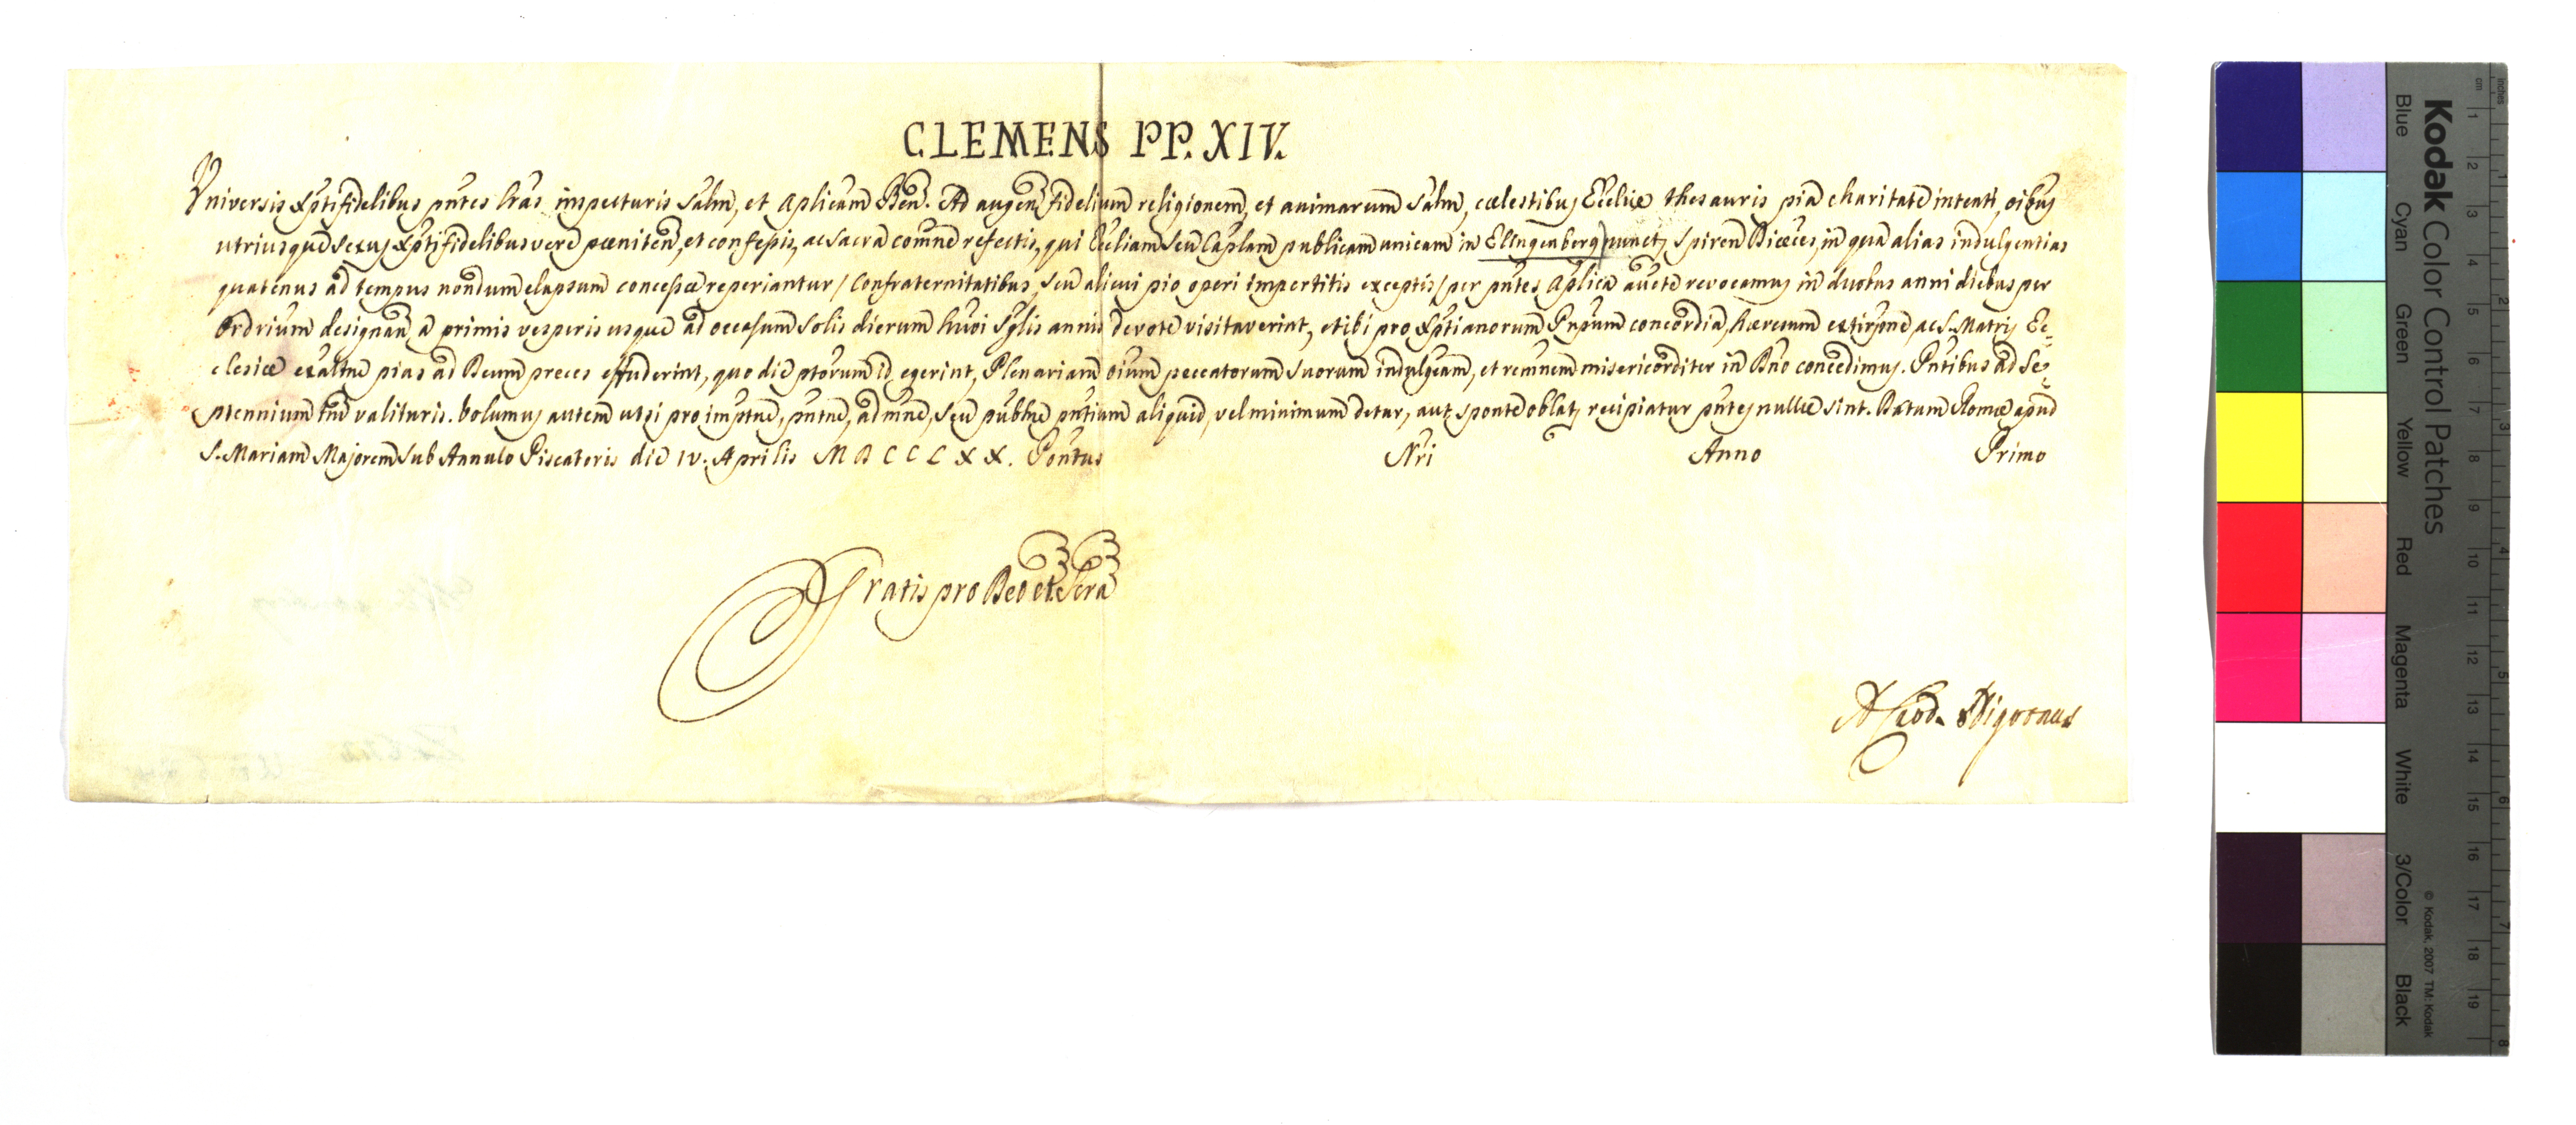 CLEMENS PP. XIV.
Universis Xpti fidelibus pntes lras inspecturis Salm, et Aplicam Ben. Ad augen fidelium religionem, et animarum Salm, cœlestibus Eccliæ thesauris pia charitate intenti, oibus
utriusque Sexus Xpti fidelibus vere pœniten, et confessis, ac Sacra comne refectis, qui Eccliam Seu Caplam publicam unicam in Ellngenberg nunct, Spiren Diœces, in qua alias indulgentias
quatenus ad tempus nondum elapsum concessæ reperiantur / Confraternitatibus, Seu alicui pio operi impertitis exceptis / per pntes Aplica aucte revocamus in duobus anni diebus per
Ordrium designan a primis vesperis usque ad occasum Solis dierum huoi Sglis annis devote visitaverint, et ibi pro Xptianorum Pnpum concordia, hæresum extirpne, ac S. Matris Ec=
clesiæ exaltne pias ad Deum preces effuderint, quo die ptorum id egerint, Plenariam oium peccatorum Suorum indulgeam, et remnem misericorditer in Dno concedimus. Pntibus ad Se=
ptennium tm valituris. Volumus autem ut si pro imptne, pntne, admne, Seu publne pntium aliquid, vel minimum detur, aut sponte oblat, recipiatur pntes nullæ Sint. Datum Romæ apud
S. Mariam Majorem Sub Annulo Piscatoris die IV. Aprilis MDCCLXX. Pontus Nri Anno Primo
Gratis pro Deo et Scra
Kodak Color Control Patches
Blue Cyan Green Yellow Red Magenta White 3/Color Black
© Kodak, 2007 TM: Kodak
cm 1 2 3 4 5 6 7 8 9 10 11 12 13 14 15 16 17 18 19
inches 1 2 3 4 5 6 7 8